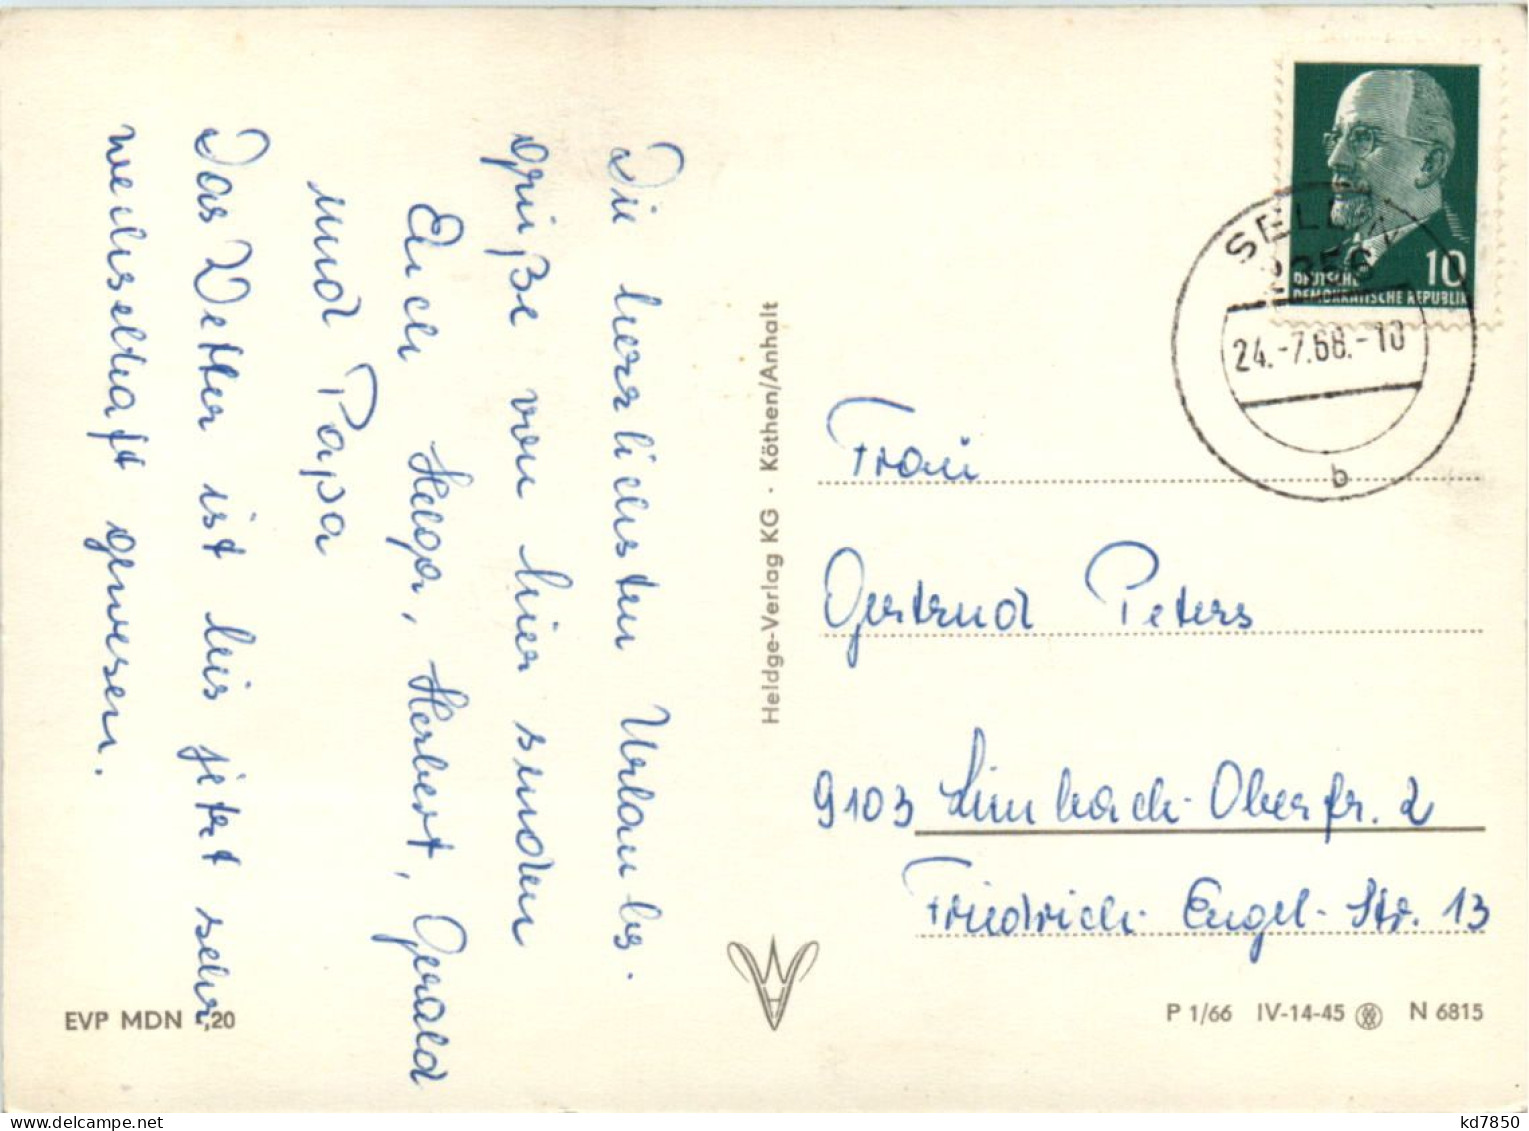 Die herzlichsten Urlaubs-
grüße von hier senden
Euch Helga, Herbert, Gerald
und Papa
Das Wetter ist bis jetzt sehr
wechselhaft gewesen.
EVP MDN -,20
Heldge-Verlag KG · Köthen/Anhalt
SELLIN
2356
24.-7.68.-10
b
10
DEUTSCHE
DEMOKRATISCHE REPUBLIK
Frau
Gertrud Peters
9103 Limbach-Oberfr. 2
Friedrich-Engel-Str. 13
P 1/66 IV-14-45 N 6815
kd7850